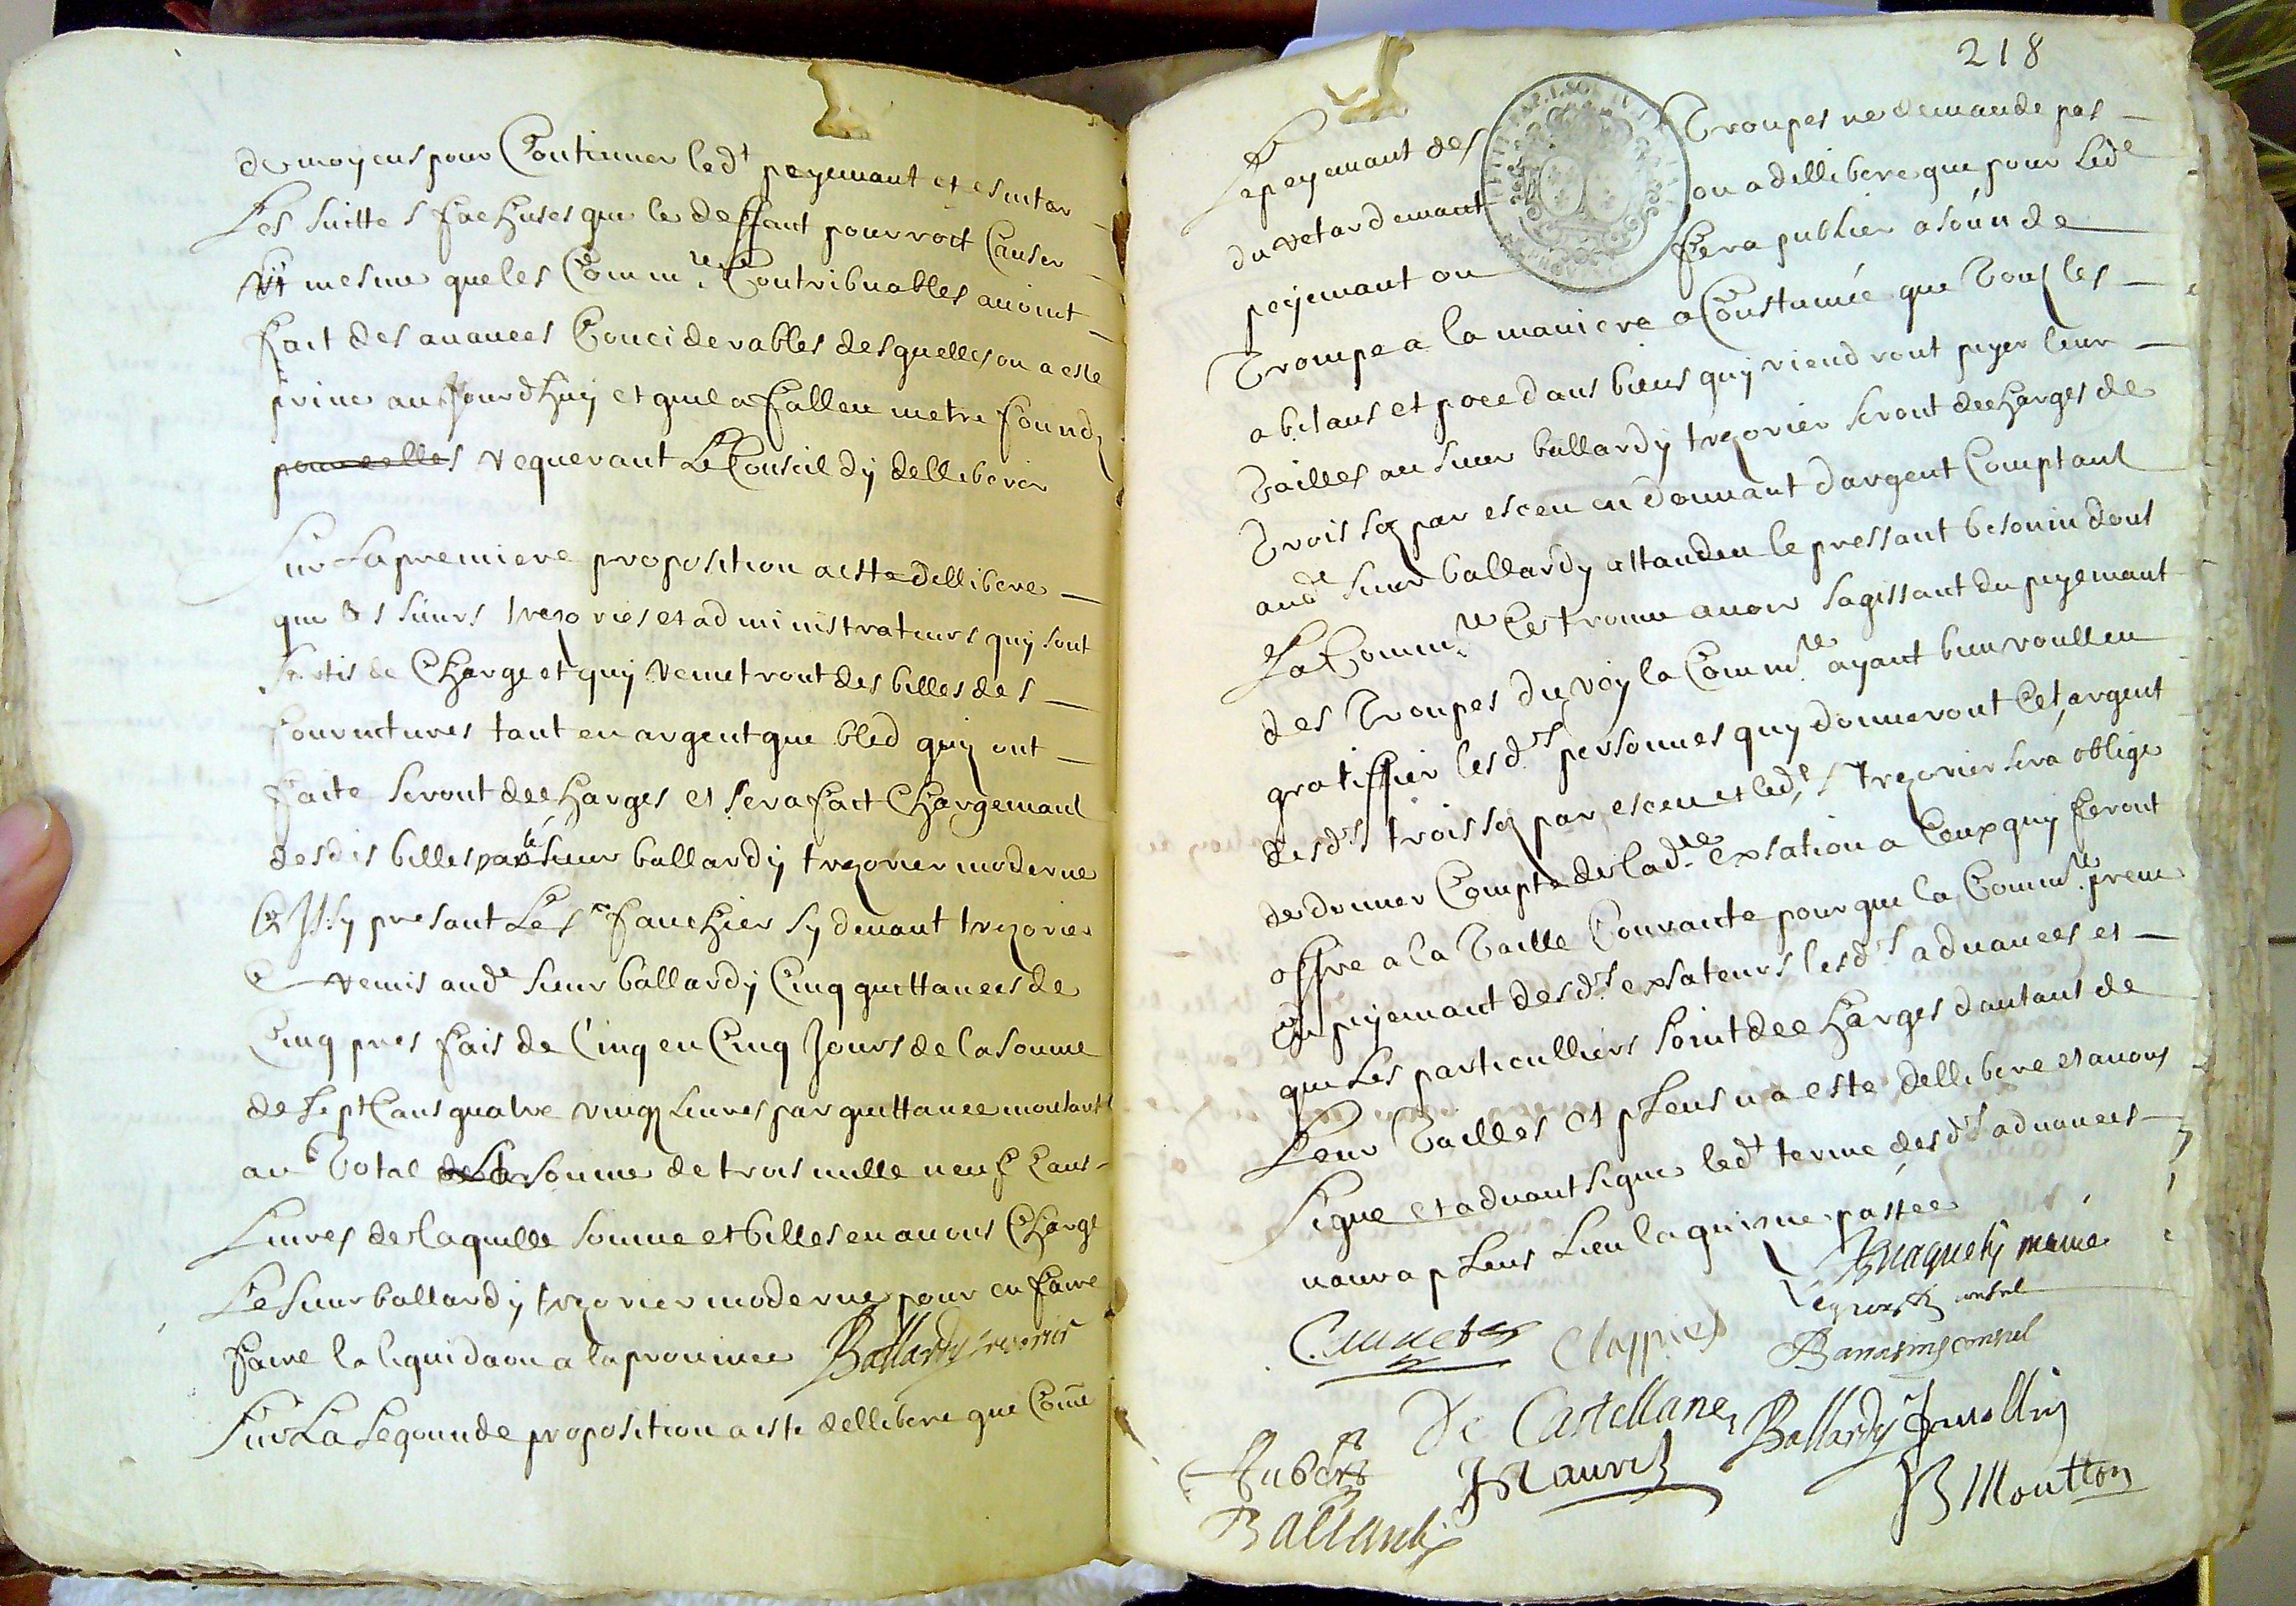 de moyens pour Continuer led.t peyemant et esvitar
Les suittes fachuses que le deffaut pourroit Causer
et mesme que les Comm.tés Contribuables auoint
fait des auances Conciderables desquelles on a este
priue au Jourdhuy et quil a falleu metre founds
pour celles requerant Le Conseil dy delliberer
Sur La premiere proposition a este dellibere
que les sieurs trezoriers et administrateurs quy sont
sortis de Charge et quy remetront des billes des
fournitures tant en argent que bled quy ont
faite seront decharges et sera fait Chargemant
desdis billes par le sieur ballardy trezorier moderne
Et Issy presant Le sr fauchier sy deuant trezorier
a remis aud.t sieur ballardy Cinq quittances de
Cinq pres fais de Cinq en Cinq Jours de la soume
de sept Cans quatre vingz Liures par quittance montant
au Total de la soume de trois mille neuf Cans
Liures de laquelle soume et billes en auons Charge
Le sieur ballardy trezorier moderne pour en faire
faire la liquidaon a la prouince Ballardy trezorier
Sur La Segounde proposition a este dellibere que Come
218
Le peyemant des Troupes ne demande pas
du retardemant on a dellibere que pour Led.t
peyemant on fera publier a soun de
Trompe a la maniere acoustumée que Tous les
abitans et pocedans biens quy viendront peyer leur
Tailles au sieur ballardy trezorier seront decharges de
Trois sos par esceu en donnant dargent Comptant
aud.t sieur ballardy attandeu le pressant besouin dont
La Comm.té Ces trouue auoir sagissant du peyemant
des Troupes du roy la Comm.té ayant bien voulleu
gratiffier lesd.s personnes quy donneront Cet argent
desd.s trois sos par esceu et led.t s.r trezorier sera oblige
de donner Compte de lad.te exsation a Ceux quy feront
offre a la Taille Courante pour que la Comm.té prene
En peyemant desd.s exsateurs lesd.s aduances et
que Les particulliers soint decharges dautant de
Leur Tailles et pleus na este dellibere et auons
Signe et aduant signer led.t terme desd.s aduances
naura pleus Lieu la quinzne passee
Braquety maire
consul
Cauuet Clappier Banarins consul
De Castellane Ballardy Jauollin
Aubert JMaurel B Moutton
Ballardy